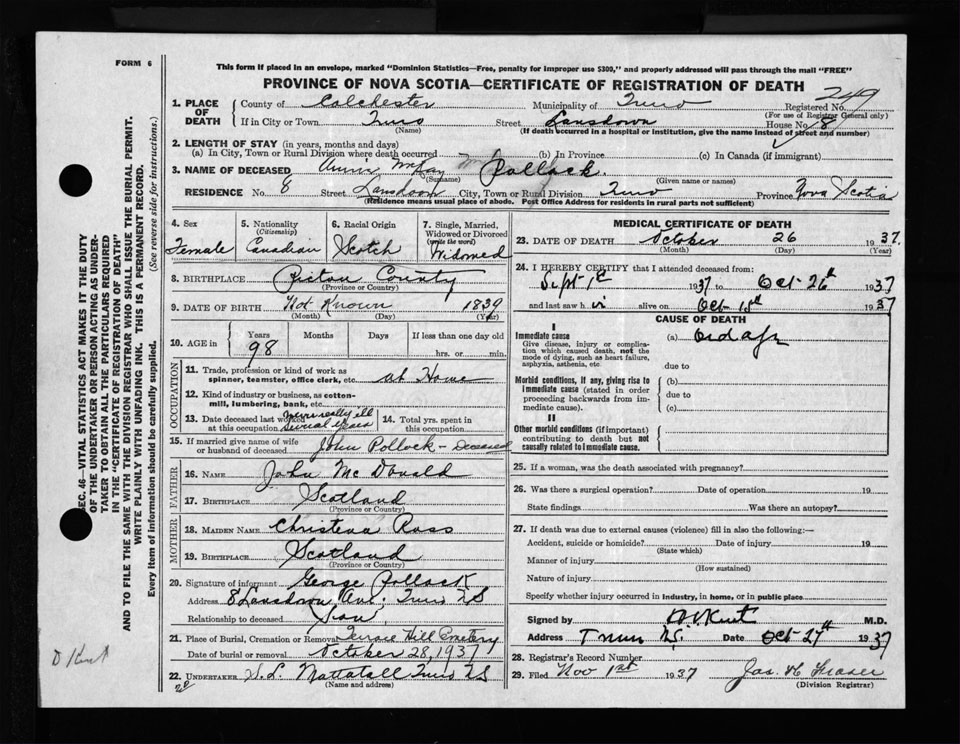 FORM 6
This form if placed in an envelope, marked "Dominion Statistics—Free, penalty for improper use $300," and properly addressed will pass through the mail "FREE"
PROVINCE OF NOVA SCOTIA—CERTIFICATE OF REGISTRATION OF DEATH
1. PLACE OF DEATH County of Colchester Municipality of Truro Registered No. 249
(For use of Registrar General only)
If in City or Town Truro Street Lansdown House No. 8
(Name) (If death occurred in a hospital or institution, give the name instead of street and number)
2. LENGTH OF STAY (in years, months and days)
(a) In City, Town or Rural Division where death occurred (b) In Province (c) In Canada (if immigrant)
3. NAME OF DECEASED Annie Pollock.
(Surname) (Given name or names)
RESIDENCE No. 8 Street Lansdoon City, Town or Rural Division Truro Province Nova Scotia
(Residence means usual place of abode. Post Office Address for residents in rural parts not sufficient)
4. Sex 5. Nationality (Citizenship) 6. Racial Origin 7. Single, Married, Widowed or Divorced (write the word)
Female Canadian Scotch Widowed
8. BIRTHPLACE Pictou County
(Province or Country)
9. DATE OF BIRTH Not Known 1839
(Month) (Day) (Year)
10. AGE in Years Months Days If less than one day old
98 hrs. or min.
OCCUPATION
11. Trade, profession or kind of work as spinner, teamster, office clerk, etc. at Home
12. Kind of industry or business, as cotton-mill, lumbering, bank, etc.
13. Date deceased last worked at this occupation really ill several years 14. Total yrs. spent in this occupation
15. If married give name of wife or husband of deceased John Pollock - Deceased
FATHER
16. Name John McDonald
17. Birthplace Scotland
(Province or Country)
MOTHER
18. Maiden Name Christena Ross
19. Birthplace Scotland
(Province or Country)
20. Signature of informant George Pollock
Address 8 Lansdown Ave. Truro NS
Relationship to deceased Son
21. Place of Burial, Cremation or Removal Terrace Hill Cemetery
Date of burial or removal October 28, 1937
22. UNDERTAKER S. L. Mattatall Truro NS
(Name and address)
MEDICAL CERTIFICATE OF DEATH
23. DATE OF DEATH October 26 1937.
(Month) (Day) (Year)
24. I HEREBY CERTIFY that I attended deceased from:
Sept 1st 1937 to Oct 26th 1937
and last saw h alive on Oct 1937
CAUSE OF DEATH
I
Immediate cause (a) old age
Give disease, injury or complication which caused death, not the mode of dying, such as heart failure, asphyxia, asthenia, etc.
due to
Morbid conditions, if any, giving rise to immediate cause (stated in order proceeding backwards from immediate cause).
(b)
due to
(c)
II
Other morbid conditions (if important) contributing to death but not causally related to immediate cause.
25. If a woman, was the death associated with pregnancy?
26. Was there a surgical operation? Date of operation 19
State findings Was there an autopsy?
27. If death was due to external causes (violence) fill in also the following:—
Accident, suicide or homicide? Date of injury 19
(State which)
Manner of injury
(How sustained)
Nature of injury
Specify whether injury occurred in industry, in home, or in public place
Signed by Kent M.D.
Address Truro N.S. Date Oct 27th 1937
28. Registrar's Record Number
29. Filed Nov 1st 1937 Jas. H. Fraser
(Division Registrar)
SEC. 46—VITAL STATISTICS ACT MAKES IT THE DUTY
OF THE UNDERTAKER OR PERSON ACTING AS UNDERTAKER TO OBTAIN ALL THE PARTICULARS REQUIRED
IN THE "CERTIFICATE OF REGISTRATION OF DEATH"
AND TO FILE THE SAME WITH THE DIVISION REGISTRAR WHO SHALL ISSUE THE BURIAL PERMIT.
WRITE PLAINLY WITH UNFADING INK. THIS IS A PERMANENT RECORD.
Every item of information should be carefully supplied. (See reverse side for instructions.)
D Kent